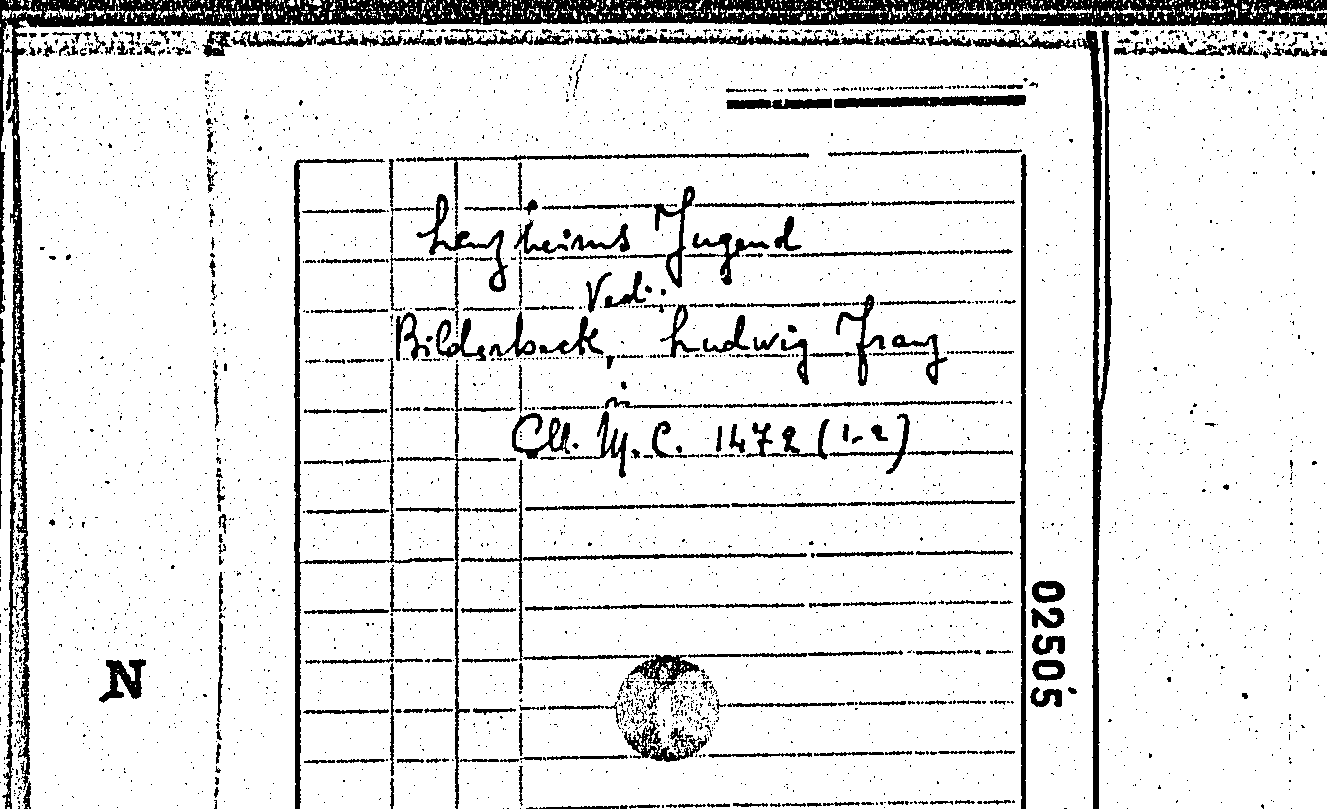 Lenzheims Jugend
Vedi:
Bilderbeck, Ludwig Franz
in
Coll. M. C. 1472 (1-2)
02505
N